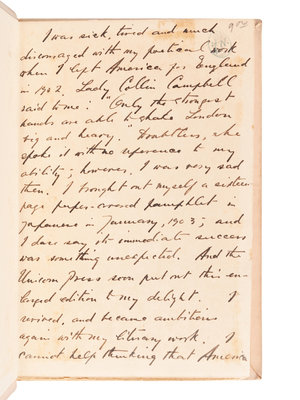 I was sick, tired and much
discouraged with my poetical work
when I left America for England
in 1902. Lady Colin Campbell
said to me: "Only the strongest
hands are able to shake London
big and heavy." Doubtless, she
spoke it with no reference to my
ability; however, I was very sad
then. I brought out myself a sixteen
page paper-covered pamphlet in
Japanese in January, 1903; and
I dare say its immediate success
was something unexpected. And the
Unicorn Press soon put out this en-
larged edition to my delight. I
revived, and became ambitious
again with my literary work. I
cannot help thinking that America